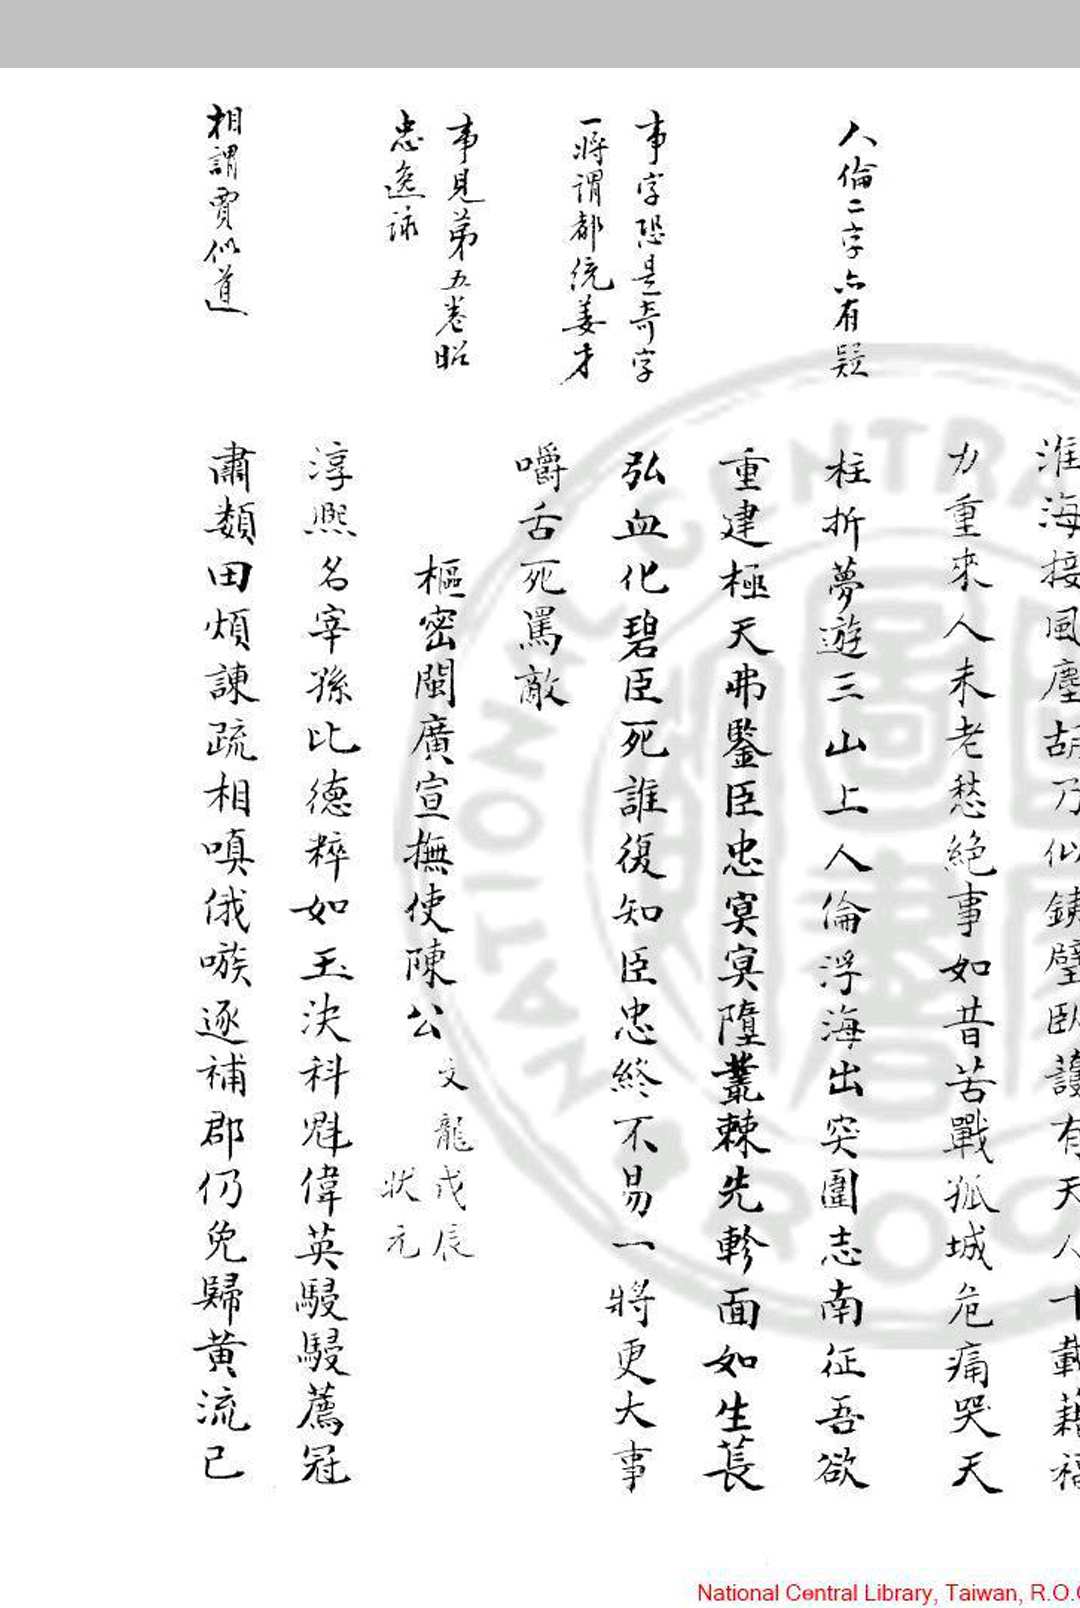 淮海接風塵胡乃似鐵壁臥護有天人十載藉福
力重來人未老愁絕事如昔苦戰孤城危痛哭天
人倫二字亦有疑
柱折夢遊三山上人倫浮海出突圍志南征吾欲
重建極天弗鑒臣忠冥冥墮叢棘先軫面如生萇
事字恐是奇字
一將謂都統姜才
弘血化碧臣死誰復知臣忠終不易一將更大事
嚼舌死罵敵
事見第五卷昭
忠逸詠
樞密閩廣宣撫使陳公
文龍戊辰
狀元
淳熙名宰孫比德粹如玉決科魁偉英駸駸薦冠
相謂賈似道
肅類田煩諫疏相嗔俄嗾逐補郡仍免歸黃流已
National Central Library, Taiwan, R.O.C
NATIONAL CENTRAL
R.O.C